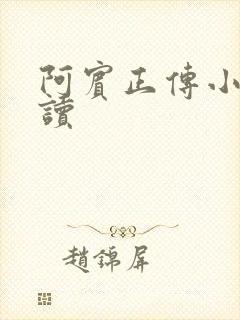 阿賓正傳小
讀
趙錦屏